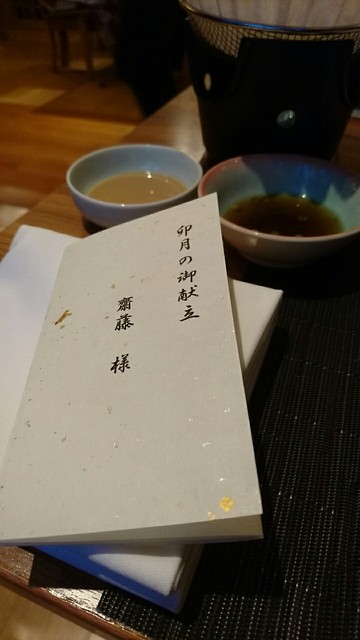 卯月の御献立
齋藤 様